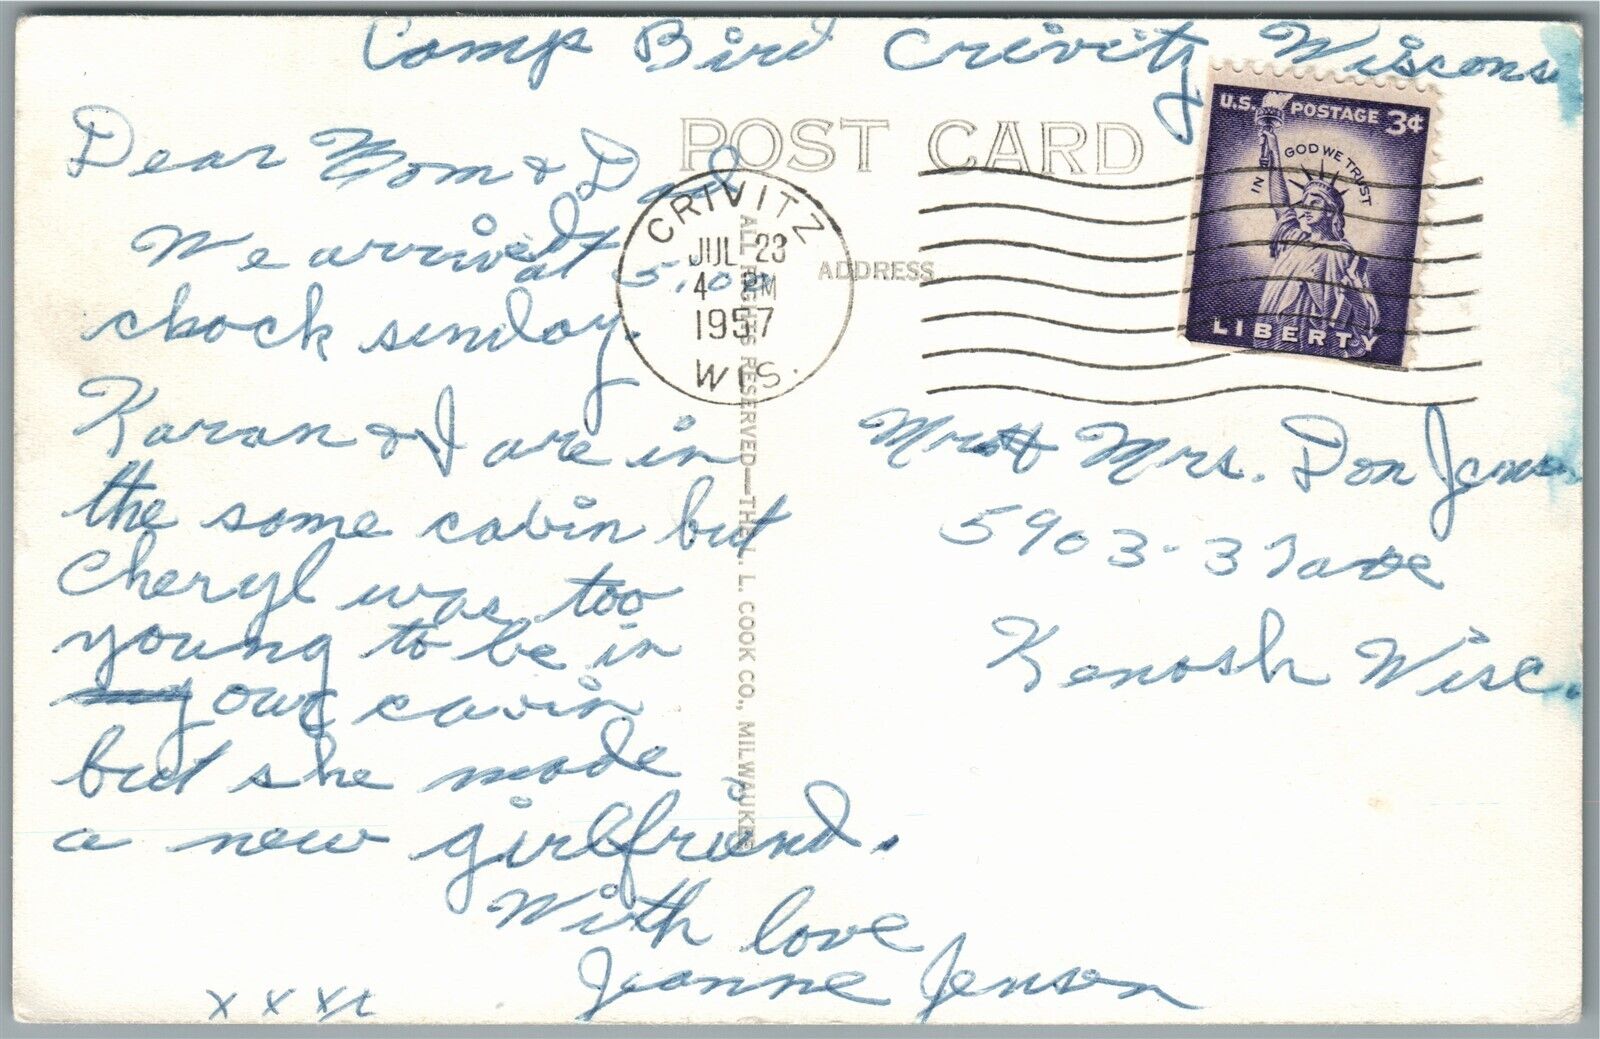 Camp Bird Crivitz Wiscons
POST CARD
ADDRESS
U.S. POSTAGE 3¢
IN GOD WE TRUST
LIBERTY
CRIVITZ
JUL 23
4 PM
1957
WIS.
Dear Mom & Dad
We arrived at 5:00
cbock sunday.
Karan & I are in
the same cabin but
Cheryl was too
young to be in
our cavin
but she made
a new girlfriend.
With love
Jeanne Jensen
x x x x
ALL RIGHTS RESERVED—THE L. L. COOK CO., MILWAUKEE
Mr & Mrs. Don
5903-3
Kenosh Wisc.